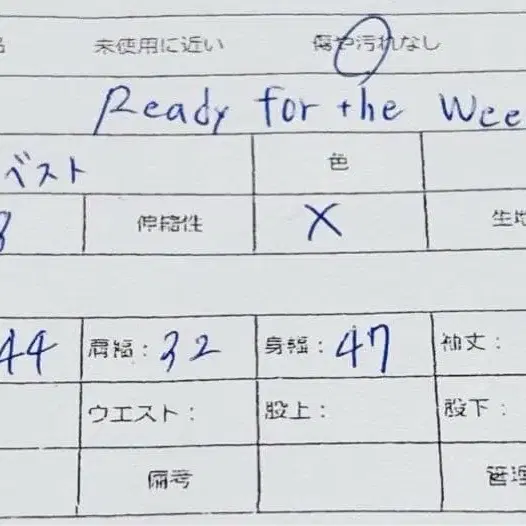 未使用に近い 傷や汚れなし
Ready for the Wee
ベスト 色
伸縮性 X 生地
44 肩幅: 32 身幅: 47 袖丈:
ウエスト: 股上: 股下:
備考 管理